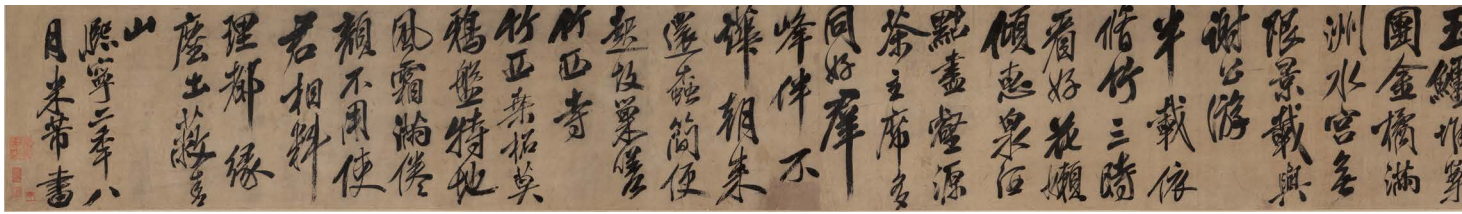 玉鱸堆案
團金橘滿
洲水宮無
限景載與
謝公游
半載依
脩竹三時
看好花嬾
傾惠泉酒
點盡壑源
茶主席多
同好群
峰伴不
譁朝来
還蠹簡便
起故巢嗟
竹西寺
竹西桑柘莫
鴉盤特地
風霜滿倦
顏不用使
君相料
理都緣
塵土蔽青
山
熙寧二年八
月米芾書